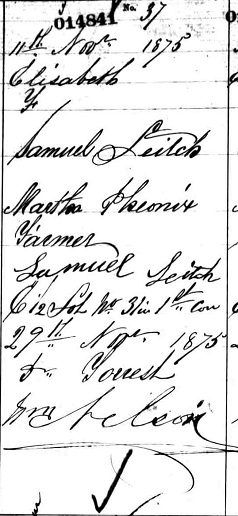 014841 No. 37
11th Novr. 1875
Elisabeth
F
Samuel Leitch
Martha Pheonix
Farmer
Samuel Leitch
Lot Nr. 31 in 1st Con
29th Novr. 1875
Dr. Forrest
Wm Nelson